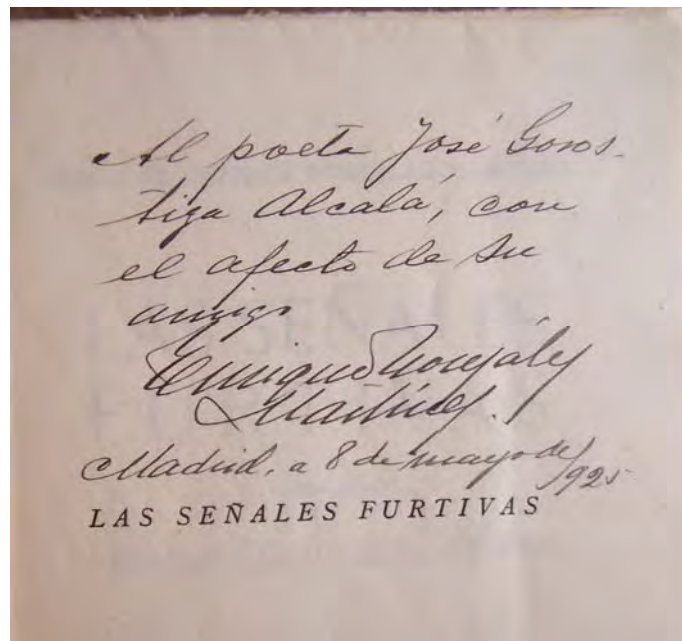 Al poeta José Goros-
tiza Alcalá, con
el afecto de su
amigo
Enrique González
Martínez.
Madrid, a 8 de mayo de
1925
LAS SEÑALES FURTIVAS